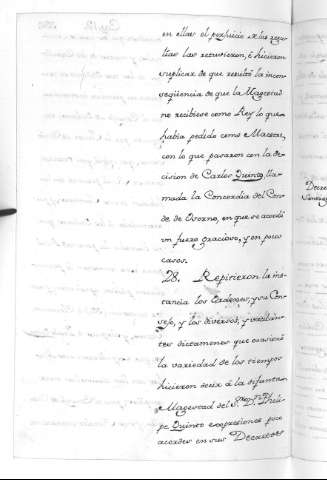 en ellas el perjuicio de las rega-
lias las retuvieron, é hicieron
suplicas de que resultó la incon-
seqüencia de que la Magestad
no recibiese como Rey lo que
havia pedido como Maestre,
con lo que pasaron con la de-
cision de Carlos Quinto, lla-
mada la Concordia del Con-
de de Osorno, en que se acordó
un fuero gracioso, y en pocos
casos.
28. Repitieron la ins-
tancia las Ordenes, y su Con-
sejo, y los diversos, y vacilan-
tes dictamenes que ocasionó
la variedad de los tiempos
hicieron decir á la difunta
Magestad del Sr. Dn. Pheli-
pe Quinto expresiones poco
acordes en sus Decretos